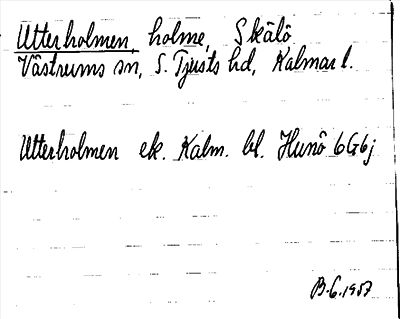 Utterholmen, holme, Skälö
Västrums sn, S. Tjusts hd, Kalmar l.
Utterholmen ek. Kalm. bl. Hunö 6G6j
B.G. 1957